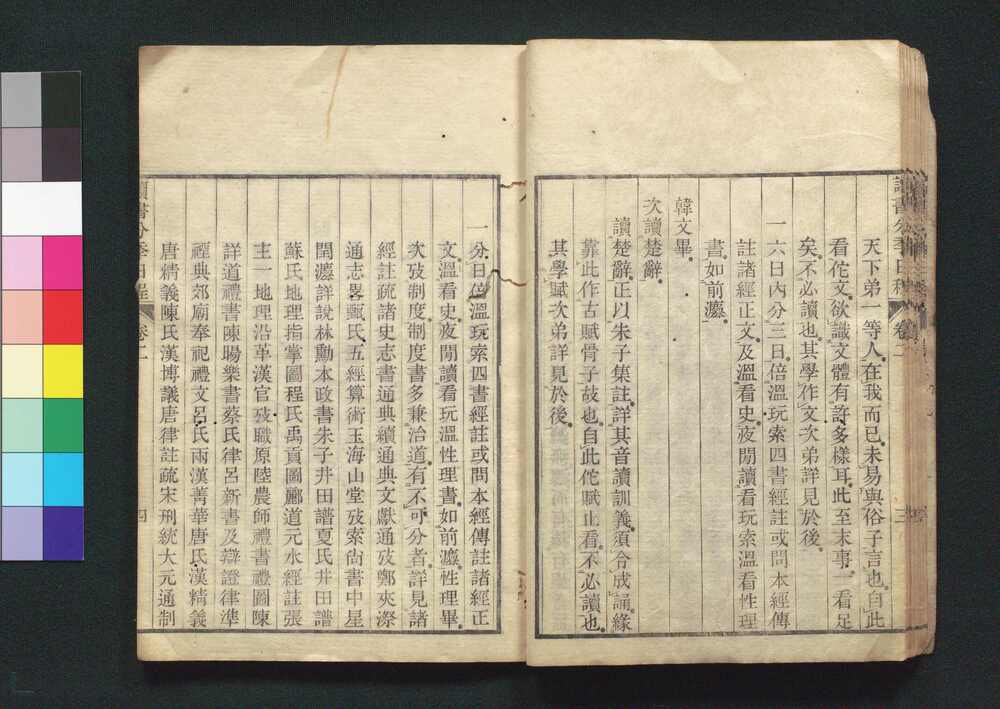 天下弟一等人在我而已未易與俗子言也自此
看佗文欲識文體有許多樣耳此至末事一看足
矣不必讀也其學作文次弟詳見於後
一六日內分三日倍溫玩索四書經註或問本經傳
註諸經正文及溫看史夜閒讀看玩索溫看性理
書如前灋
韓文畢
次讀楚辭
讀楚辭正以朱子集註詳其音讀訓義須合成誦緣
靠此作古賦骨子故也自此佗賦止看不必讀也
其學賦次弟詳見於後
讀書分年日程
卷二
三
一分日倍溫玩索四書經註或問本經傳註諸經正
文溫看史夜閒讀看玩溫性理書如前灋性理畢
次攷制度制度書多兼治道有不可分者詳見諸
經註疏諸史志書通典續通典文獻通攷鄭夾漈
通志畧甄氏五經算術玉海山堂攷索尙書中星
閏灋詳說林勳本政書朱子井田譜夏氏井田譜
蘇氏地理指掌圖程氏禹貢圖酈道元水經註張
主一地理沿革漢官攷職原陸農師禮書禮圖陳
詳道禮書陳暘樂書蔡氏律呂新書及辯證律準
禋典郊廟奉祀禮文呂氏兩漢菁華唐氏漢精義
唐精義陳氏漢博議唐律註疏宋刑統大元通制
讀書分年日程
卷二
四